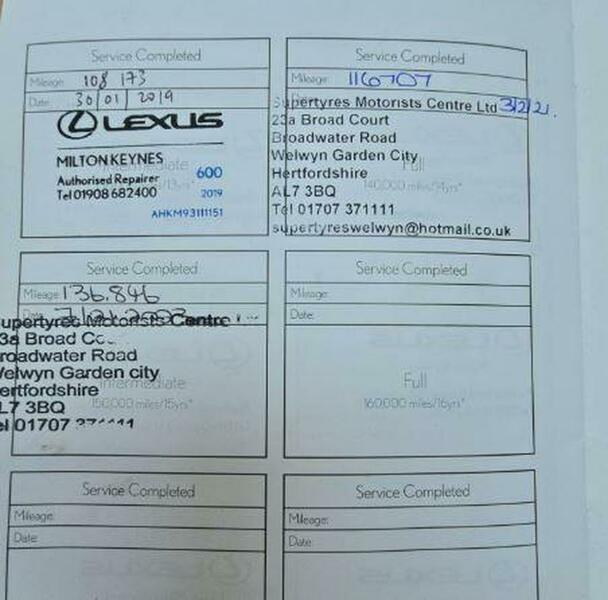 Service Completed
Mileage: 108 173
Date: 30/01/2019
LEXUS
MILTON KEYNES
Intermediate
Authorised Repairer 600
Tel 01908 682400 2019
AHKM93111151
Service Completed
Mileage: 116707
Supertyres Motorists Centre Ltd 3/2/21.
23a Broad Court
Broadwater Road
Welwyn Garden City
Full
Hertfordshire
140,000 miles/14yrs*
AL7 3BQ
Tel 01707 371111
supertyreswelwyn@hotmail.co.uk
Service Completed
Mileage: 136,846
Date:
upertyres Motorists Centre
3a Broad
roadwater Road
Welwyn Garden city
Intermediate
ertfordshire
150,000 miles/15yrs*
L7 3BQ
el 01707
Service Completed
Mileage:
Date:
Full
160,000 miles/16yrs*
Service Completed
Mileage:
Date:
Service Completed
Mileage:
Date: